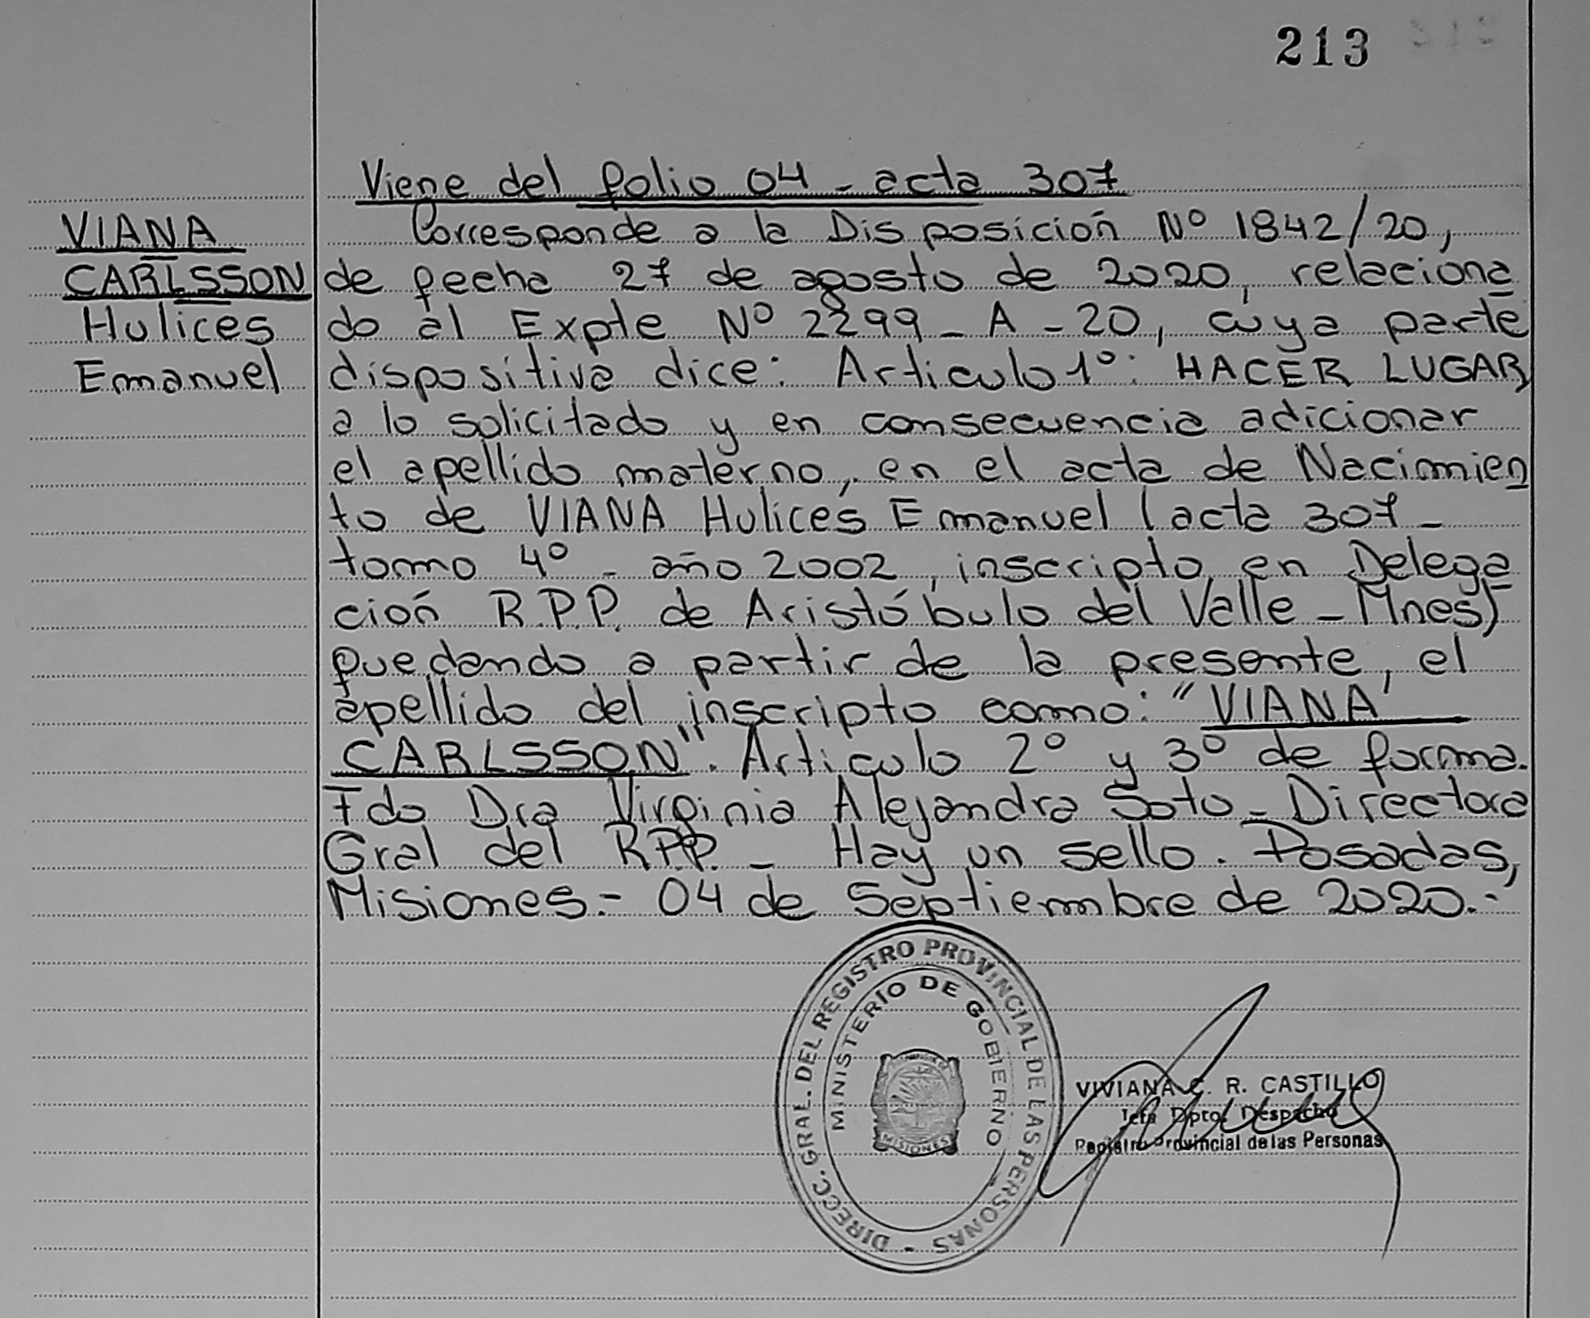 213
Viene del folio 04 - acta 307
VIANA
CARLSSON
Hulices
Emanuel
Corresponde a la Disposición Nº 1842/20,
de fecha 27 de agosto de 2020, relaciona
do al Expte Nº 2299 - A - 20, cuya parte
dispositiva dice: Articulo 1º: HACER LUGAR
a lo solicitado y en consecuencia adicionar
el apellido materno, en el acta de Nacimien
to de VIANA Hulices Emanuel (acta 307 -
tomo 4º - año 2002, inscripto en Delega
ción R.P.P. de Aristóbulo del Valle - Mnes)
quedando a partir de la presente, el
apellido del inscripto como: "VIANA
CARLSSON". Articulo 2º y 3º de forma.
Fdo Dra Virginia Alejandra Soto - Directora
Gral del RPP. - Hay un sello. Posadas,
Misiones.- 04 de Septiembre de 2020.-
DIRECC. GRAL. DEL REGISTRO PROVINCIAL DE LAS PERSONAS -
MINISTERIO DE GOBIERNO
MISIONES
VIVIANA C. R. CASTILLO
Jefa Dpto. Despacho
Registro Provincial de las Personas